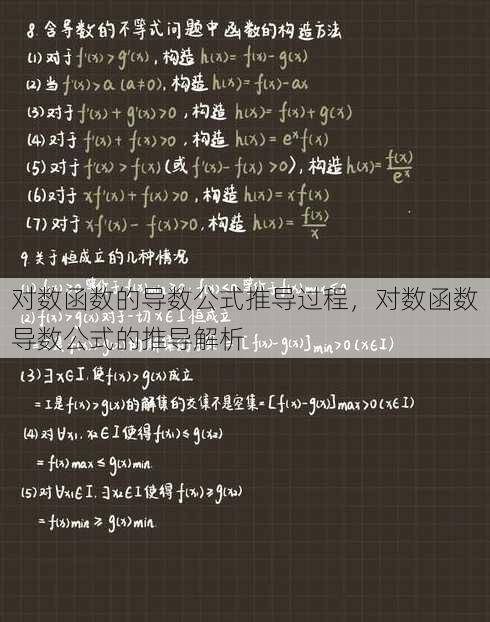 8.含导数的不等式问题中函数的构造方法
(1)对于f'(x)>g'(x),构造h(x)=f(x)-g(x)
(2)当f'(x)>a(a≠0),构造h(x)=f(x)-ax
(3)对于f'(x)+g'(x)>0,构造h(x)=f(x)+g(x)
(4)对于f'(x)+f(x)>0,构造h(x)=eˣf(x)
(5)对于f'(x)>f(x)(或f'(x)-f(x)>0),构造h(x)=f(x)/eˣ
(6)对于xf'(x)+f(x)>0,构造h(x)=xf(x)
(7)对于xf'(x)-f(x)>0,构造h(x)=f(x)/x
9.关于恒成立的几种情况
对数函数的导数公式推导过程，对数函数
(2)f(x)>g(x)对于一切x∈I恒成立
导数公式的推导解析
[f(x)-g(x)]min>0(x∈I)
(3)∃x∈I,使f(x)>g(x)成立
=I是f(x)>g(x)的解集的交集不是空集=[f(x)-g(x)]max>0(x∈I)
(4)对∀x₁,x₂∈I使得f(x₁)≤g(x₂)
=f(x)max≤g(x)min
(5)对∀x₁∈I,∃x₂∈I使得f(x₁)≥g(x₂)
=f(x)min≥g(x)min